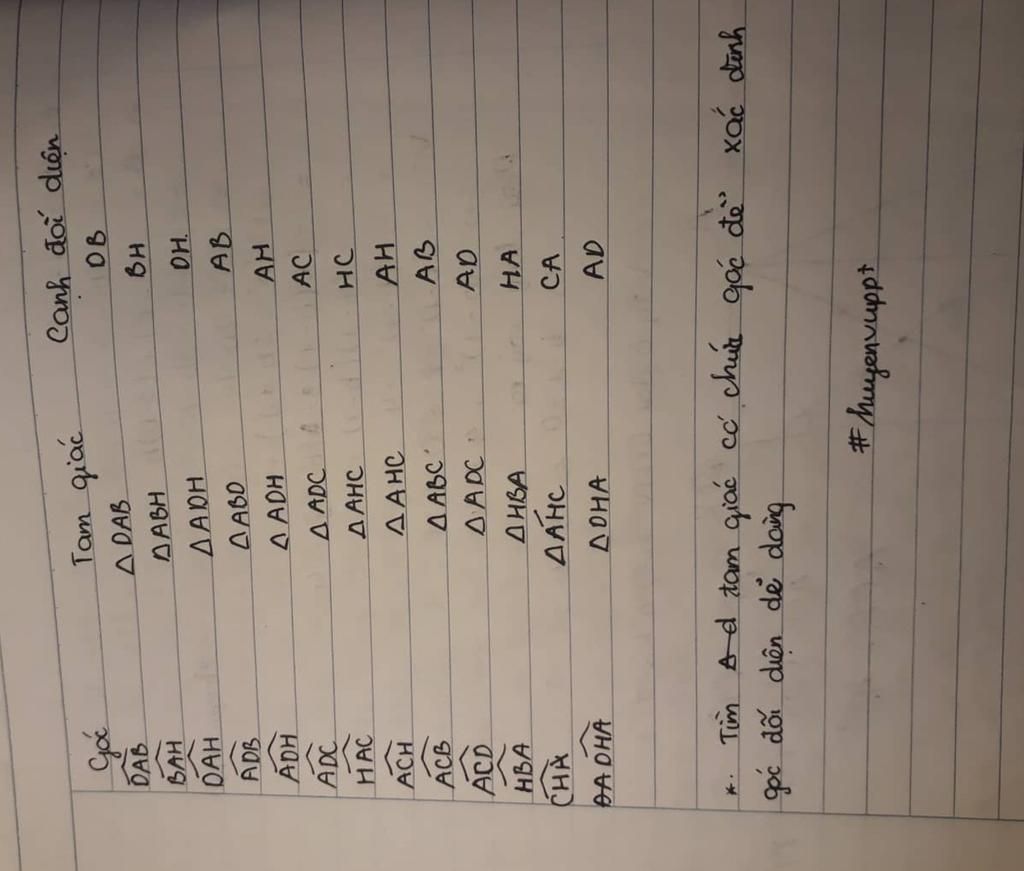 Góc Tam giác Cạnh đối diện
DAB ΔDAB DB
BAH ΔABH BH
DAH ΔADH DH
ADB ΔABD AB
ADH ΔADH AH
ADC ΔADC AC
HAC ΔAHC HC
ACH ΔAHC AH
ACB ΔABC AB
ACD ΔADC AD
HBA ΔHBA HA
CHA ΔAHC CA
DHA ΔDHA AD
*. Tìm tam giác có chứa góc để xác định
góc dối diện dể dàng
#huyenvuppt